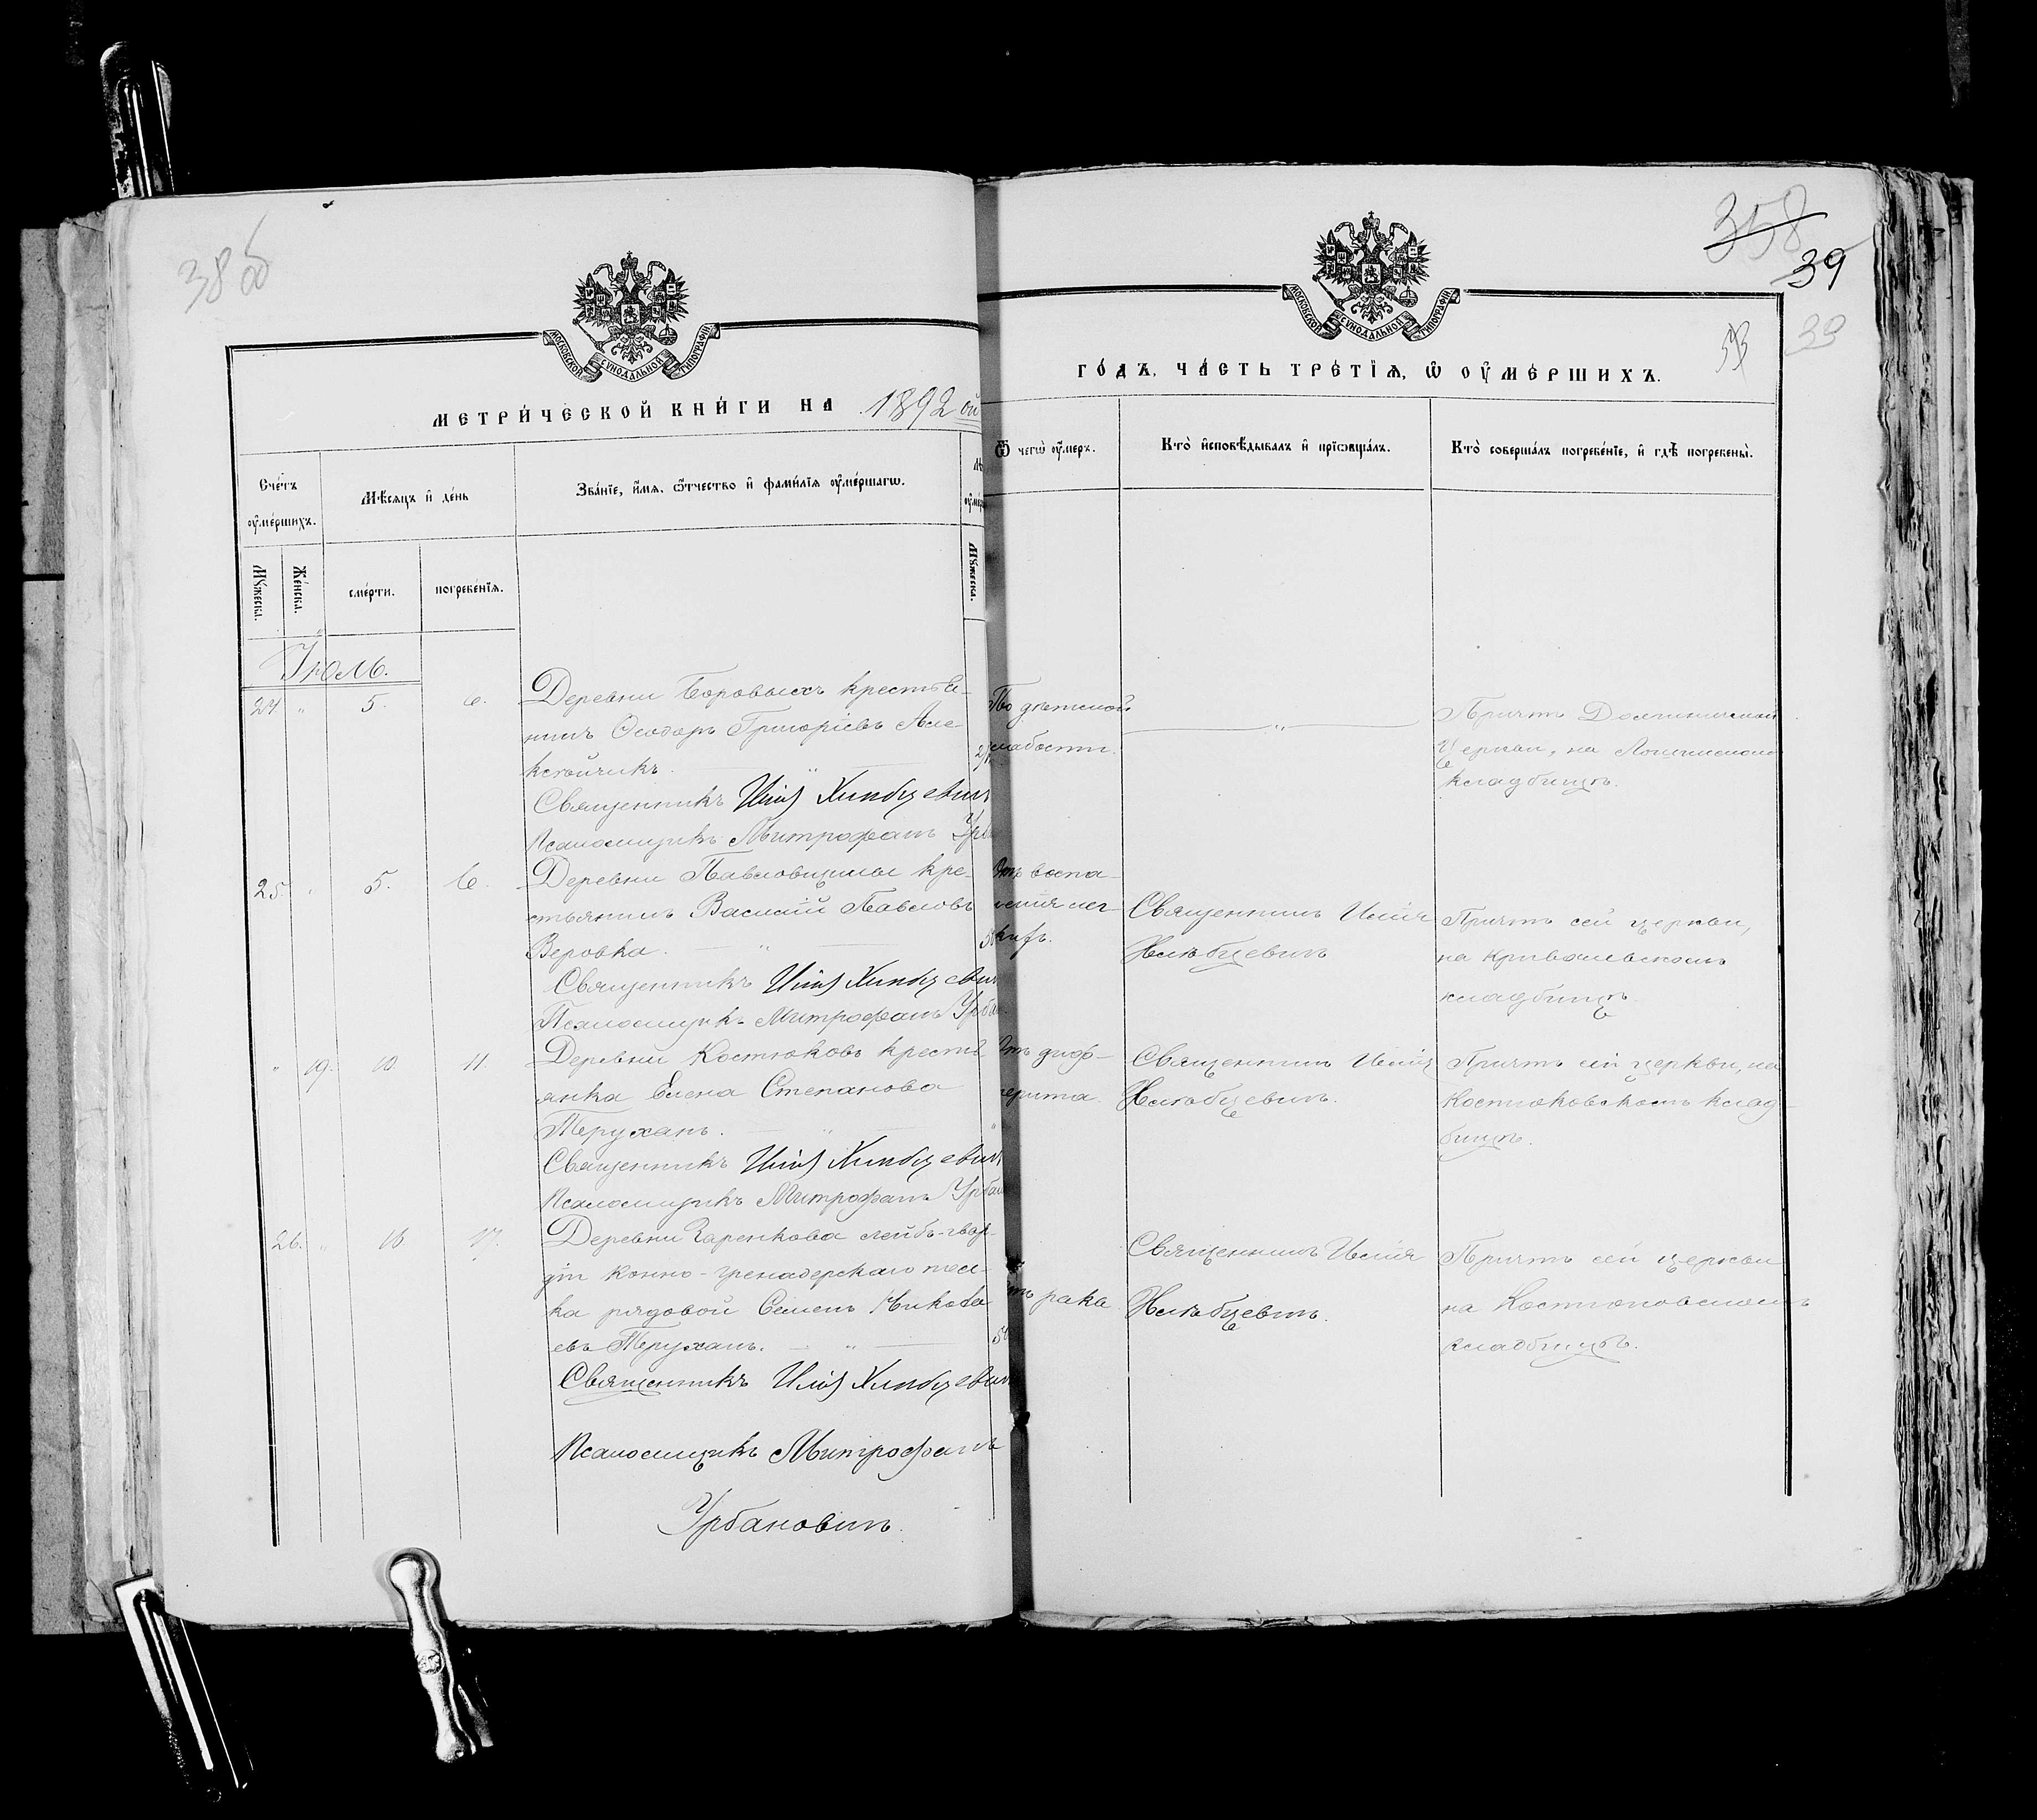 38 об
358
39
39
МОСКОВСКОЙ СѴНОДАЛЬНОЙ ТИПОГРАФІИ
МЕТРИ́ЧЕСКОЙ КНИ́ГИ НА 1892 ой
Сче́тъ ᲂу҆ме́ршихъ.
Мѣ́сяцъ и҆ де́нь
Зва́нїе, и҆́мѧ, ѻ҆́тчество и҆ фами́лїѧ ᲂу҆ме́ршагѡ.
Мꙋ́жеска.
Же́нска.
сме́рти.
погребе́нїѧ.
Мꙋ́жеска.
Іюль.
24 " 5. 6.
Деревни Боровыхъ крестья-
нинъ Ѳеодоръ Григоріевъ Але-
ксейчикъ. "
Священникъ Илія Хлѣбцевичъ
Псаломщикъ Митрофанъ Урб
25. " 5. 6.
Деревни Павловщины кре-
стьянинъ Василій Павловъ
Веровка. "
Священникъ Илія Хлѣбцевич
Псаломщикъ Митрофанъ Урбан
" 19. 10. 11.
Деревни Костюковъ кресть
янка Елена Степанова
Терухань. "
Священникъ Илія Хлѣбцевич
Псаломщикъ Митрофанъ Урбан
26. " 16 17.
Деревни Гаренкова лейбъ-гвар-
діи Конно-гренадерскаго пол-
ка рядовой Семенъ Никола
евъ Терухань. "
Священникъ Илія Хлѣбцевич
Псаломщикъ Митрофанъ
Урбановичъ.
МОСКОВСКОЙ СѴНОДАЛЬНОЙ ТИПОГРАФІИ
ГО́ДЪ, ЧА́СТЬ ТРЕ́ТЇѦ, Ѽ ОУ҆МЕ́РШИХЪ.
Ѿ чегѡ̀ ᲂу҆́меръ.
Кто̀ и҆сповѣ́дывалъ и҆ прїѡбща́лъ.
Кто̀ соверша́лъ погребе́нїе, и҆ гдѣ̀ погребены̀.
По дѣтской
слабости.
"
Причтъ
Церкви, на
кладбищѣ.
Отъ воспа-
ленія лег-
кихъ.
Священникъ Илія
Хлѣбцевичъ
Причтъ сей церкви,
на Кривальскомъ
кладбищѣ.
Отъ диф-
терита.
Священникъ Илія
Хлѣбцевичъ.
Причтъ сей церкви, на
Костюковскомъ клад-
бищѣ.
отъ рака
Священникъ Илія
Хлѣбцевичъ.
Причтъ сей церкви
на Костюковскомъ
кладбищѣ.